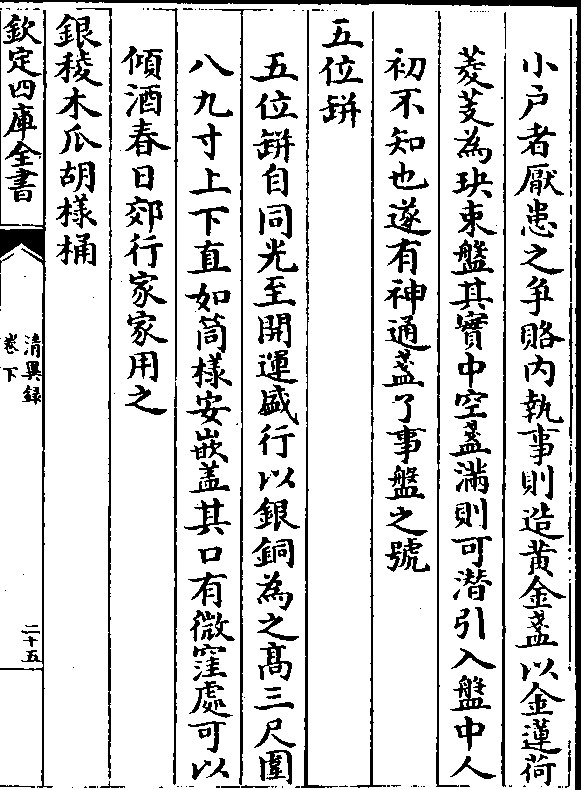 小户者厭患之爭賂内執事則造黄金盞以金蓮荷
菱芰為玦束盤其實中空盞滿則可潛引入盤中人
初不知也遂有神通盞了事盤之號
五位缾
五位缾自同光至開運盛行以銀銅為之髙三尺圍
八九寸上下直如筒樣安嵌盖其口有微窪處可以
傾酒春日郊行家家用之
銀稜木瓜胡樣桶
欽定四庫全書
清異録
卷下
二十五